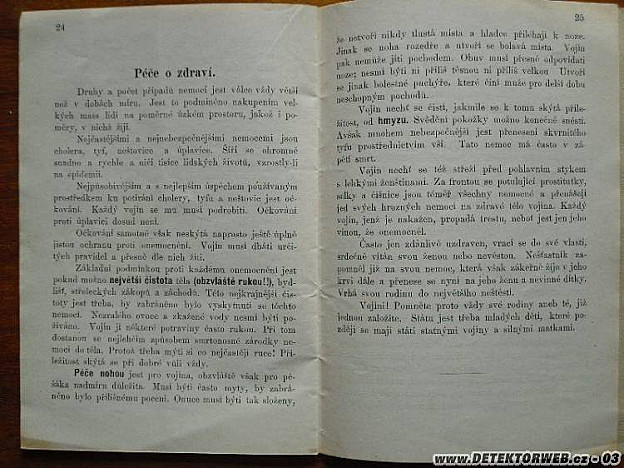 24
Péče o zdraví.
Druhy a počet případů nemocí jest válce vždy větší
než v dobách míru. Jest to podmíněno nakupením vel-
kých mass lidí na poměrně úzkém prostoru, jakož i po-
měry, v nichž žijí.
Nejčastějšími a nejnebezpečnějšími nemocemi jsou
cholera, tyf, neštovice a úplavice. Šíří se ohromně
snadno a rychle a ničí tisíce lidských životů, vzrostly-li
na epidemii.
Nejpůsobivějším a s nejlepším úspěchem používaným
prostředkem ku potírání cholery, tyfu a neštovic jest oč-
kování. Každý vojín se mu musí podrobiti. Očkování
proti úplavici dosud není.
Očkování samotné však neskýtá naprosto ještě úplně
jistou ochranu proti onemocnění. Vojín musí dbáti urči-
tých pravidel a přesně dle nich žíti.
Základní podmínkou proti každému onemocnění jest
pokud možno největší čistota těla (obzvláště rukou!), byd-
lišť, střeleckých zákopů a záchodů. Této nejkrajnější čis-
toty jest třeba, by zabráněno bylo vyskytnutí se těchto
nemocí. Nezralého ovoce a zkažené vody nesmí býti po-
žíváno. Vojín jí některé potraviny často rukou. Při tom
dostanou se nejlehčím způsobem smrtonosné zárodky
nemoci do těla. Protož třeba mýti si co nejčastěji ruce! Pří-
ležitost skýtá se při dobré vůli vždy.
Péče nohou jest pro vojína, obzvláště však pro pě-
šáka nadmíru důležita. Musí býti často myty, by zabrá-
něno bylo přílišnému pocení. Onuce musí býti tak složeny,
25
že netvoří nikdy tlustá místa a hladce přiléhají k noze.
Jinak se noha rozedře a utvoří se bolavá místa. Vojín
pak nemůže jíti pochodem. Obuv musí přesně odpovídati
noze; nesmí býti ni příliš těsnou ni příliš velkou Utvoří
se jinak bolestné puchýře, které činí muže pro delší dobu
neschopným pochodu.
Vojín nechť se čistí, jakmile se k tomu skýtá příle-
žitost, od hmyzu. Svědění pokožky možno konečně snésti.
Avšak mnohem nebezpečnější jest přenesení skvrnitého
tyfu prostřednictvím vší. Tato nemoc má často v zá-
pětí smrt.
Vojín nechť se též střeží před pohlavním stykem
s lehkými ženštinami. Za frontou se potulující prostitutky,
selky a číšnice jsou téměř všechny nemocné a přenášejí
jed svých hrozných nemocí na zdravé tělo vojína. Každý
vojín, jenž je nakažen, propadá trestu, neboť jest jen jeho
vinou, že onemocněl.
Často jen zdánlivě uzdraven, vrací se do své vlasti,
srdečně vítán svou ženou nebo nevěstou. Nešťastník za-
pomněl již na svou nemoc, která však zákeřně žije v jeho
krvi dále a přenese se nyní na jeho ženu a nevinné dítky.
Vrhá svou rodinu do největšího neštěstí.
Vojíni! Pomněte proto vždy své rodiny aneb té, již
jednou založíte. Státu jest třeba mladých dětí, které po-
zději se mají státi statnými vojíny a silnými matkami.
www.DETEKTORWEB.cz • 03